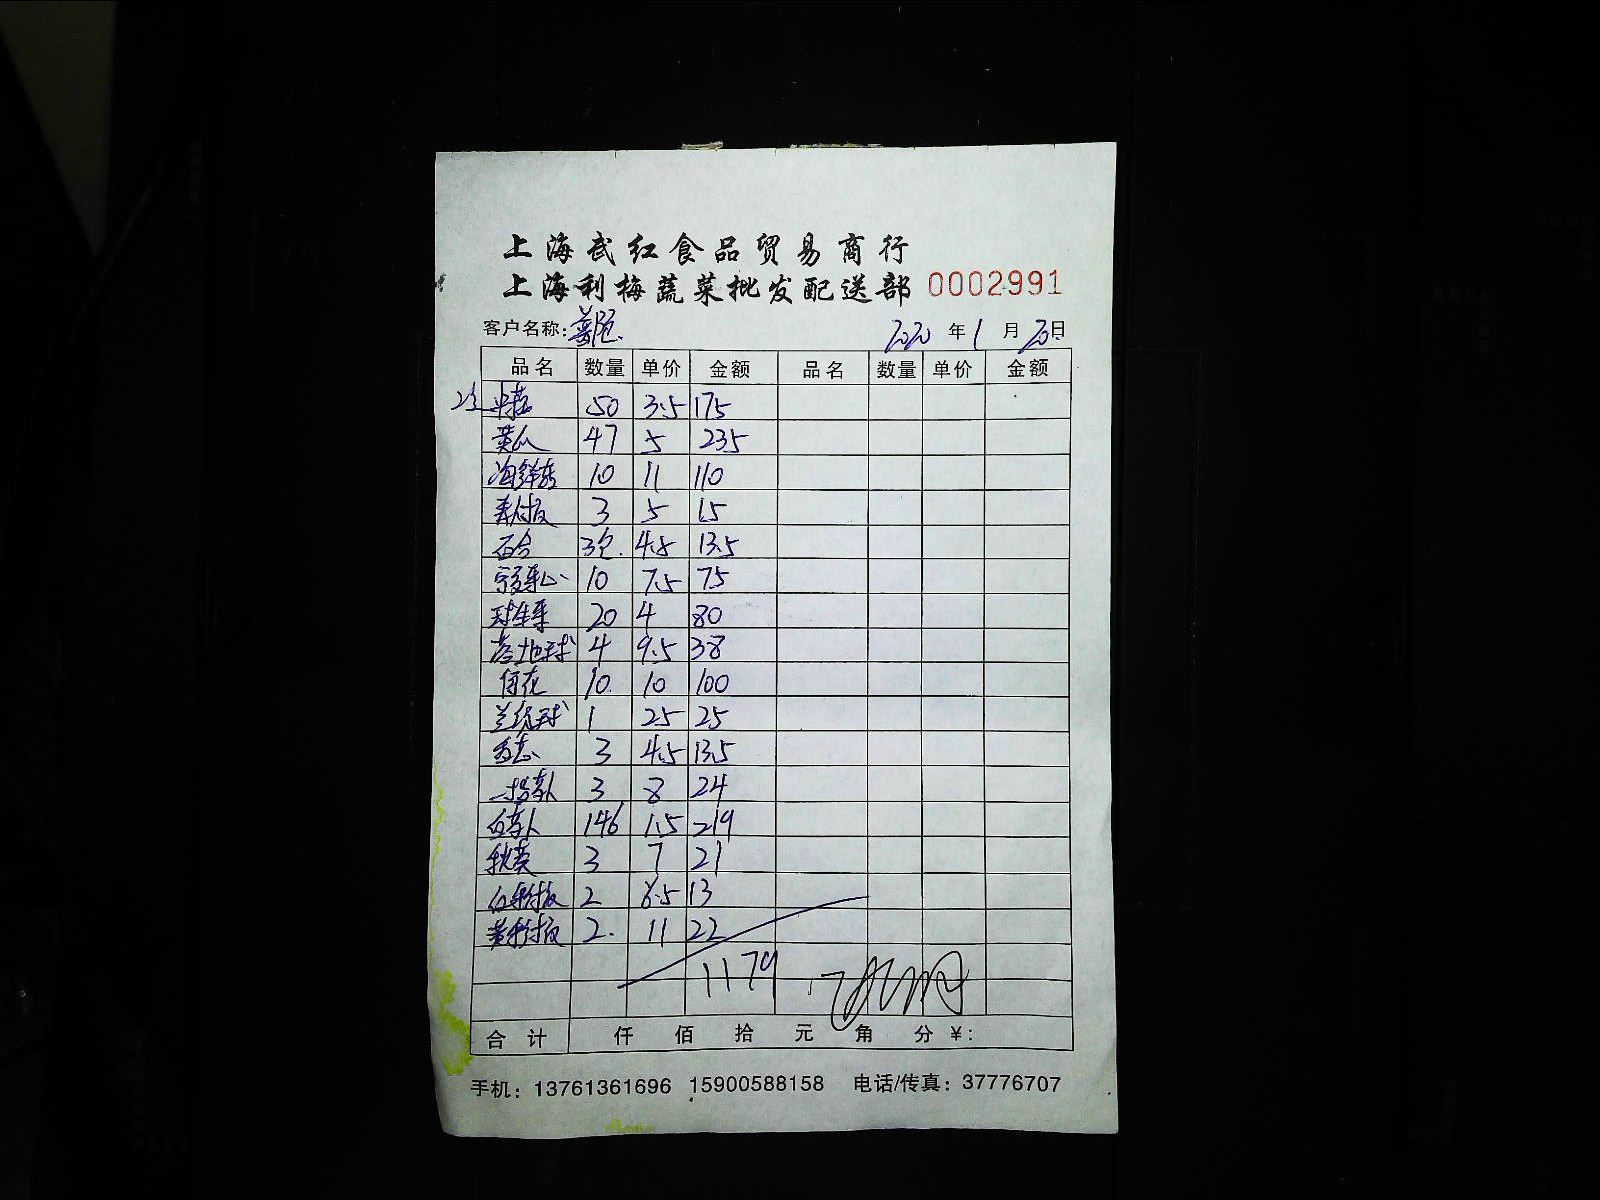 上海武红食品贸易商行
上海利梅蔬菜批发配送部 0002991
客户名称: 2020 年 1 月 20 日
品名 数量 单价 金额 品名 数量 单价 金额
50 3.5 175
黄瓜 47 5 235
海鲜菇 10 11 110
3 5 15
百合 3包. 4.5 13.5
10 7.5 75
球生菜 20 4 80
落地球 4 9.5 38
百花 10. 10 100
兰纹球 1 25 25
香葱 3 4.5 13.5
3 8 24
白萝卜 146 1.5 219
秋葵 3 7 21
红彩椒 2 6.5 13
黄彩椒 2. 11 22
1179
合计 仟 佰 拾 元 角 分 ¥:
手机: 13761361696 15900588158 电话/传真: 37776707